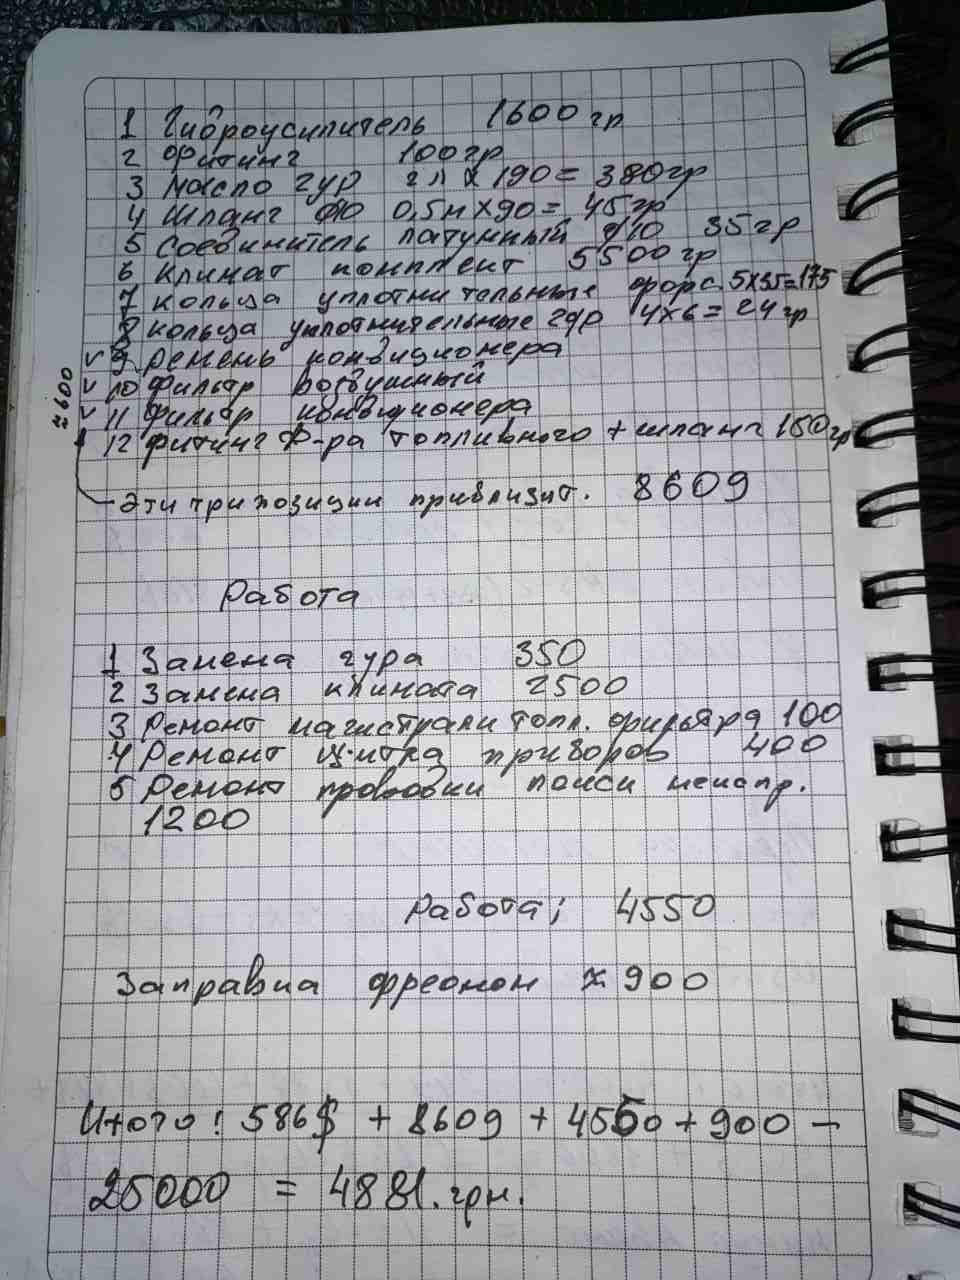 1 Гидроусилитель 1600 гр
2 Фитинг 100 гр
3 Масло гур 2л х 190 = 380 гр
4 Шланг Ф10 0,5м х 90 = 45 гр
5 Соединитель латунный ф10 35 гр
6 Климат комплект 5500 гр
7 кольца уплотнительные форс. 5х35=175
8 кольца уплотнительные гур 4х6 = 24 гр
v 9 ремень кондиционера
v 10 фильтр воздушный
v 11 фильтр кондиционера
≈600
12 фитинг ф-ра топливного + шланг 150 гр
Эти три позиции приблизит. 8609
Работа
1 Замена гура 350
2 Замена климата 2500
3 Ремонт магистрали топл. фильтра 100
4 Ремонт щитка приборов 400
5 Ремонт проводки поиск неиспр.
1200
Работа; 4550
Заправка фреоном ≈ 900
Итого: 586$ + 8609 + 4550 + 900 −
25000 = 4881. грн.